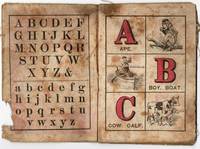 A B C D E F
G H I J K L
M N O P Q R
S T U V W
X Y Z &
a b c d e f g
h i j k l m
n o p q r s t u
v w x y z
A
APE.
B
BOY. BOAT.
C
COW. CALF.